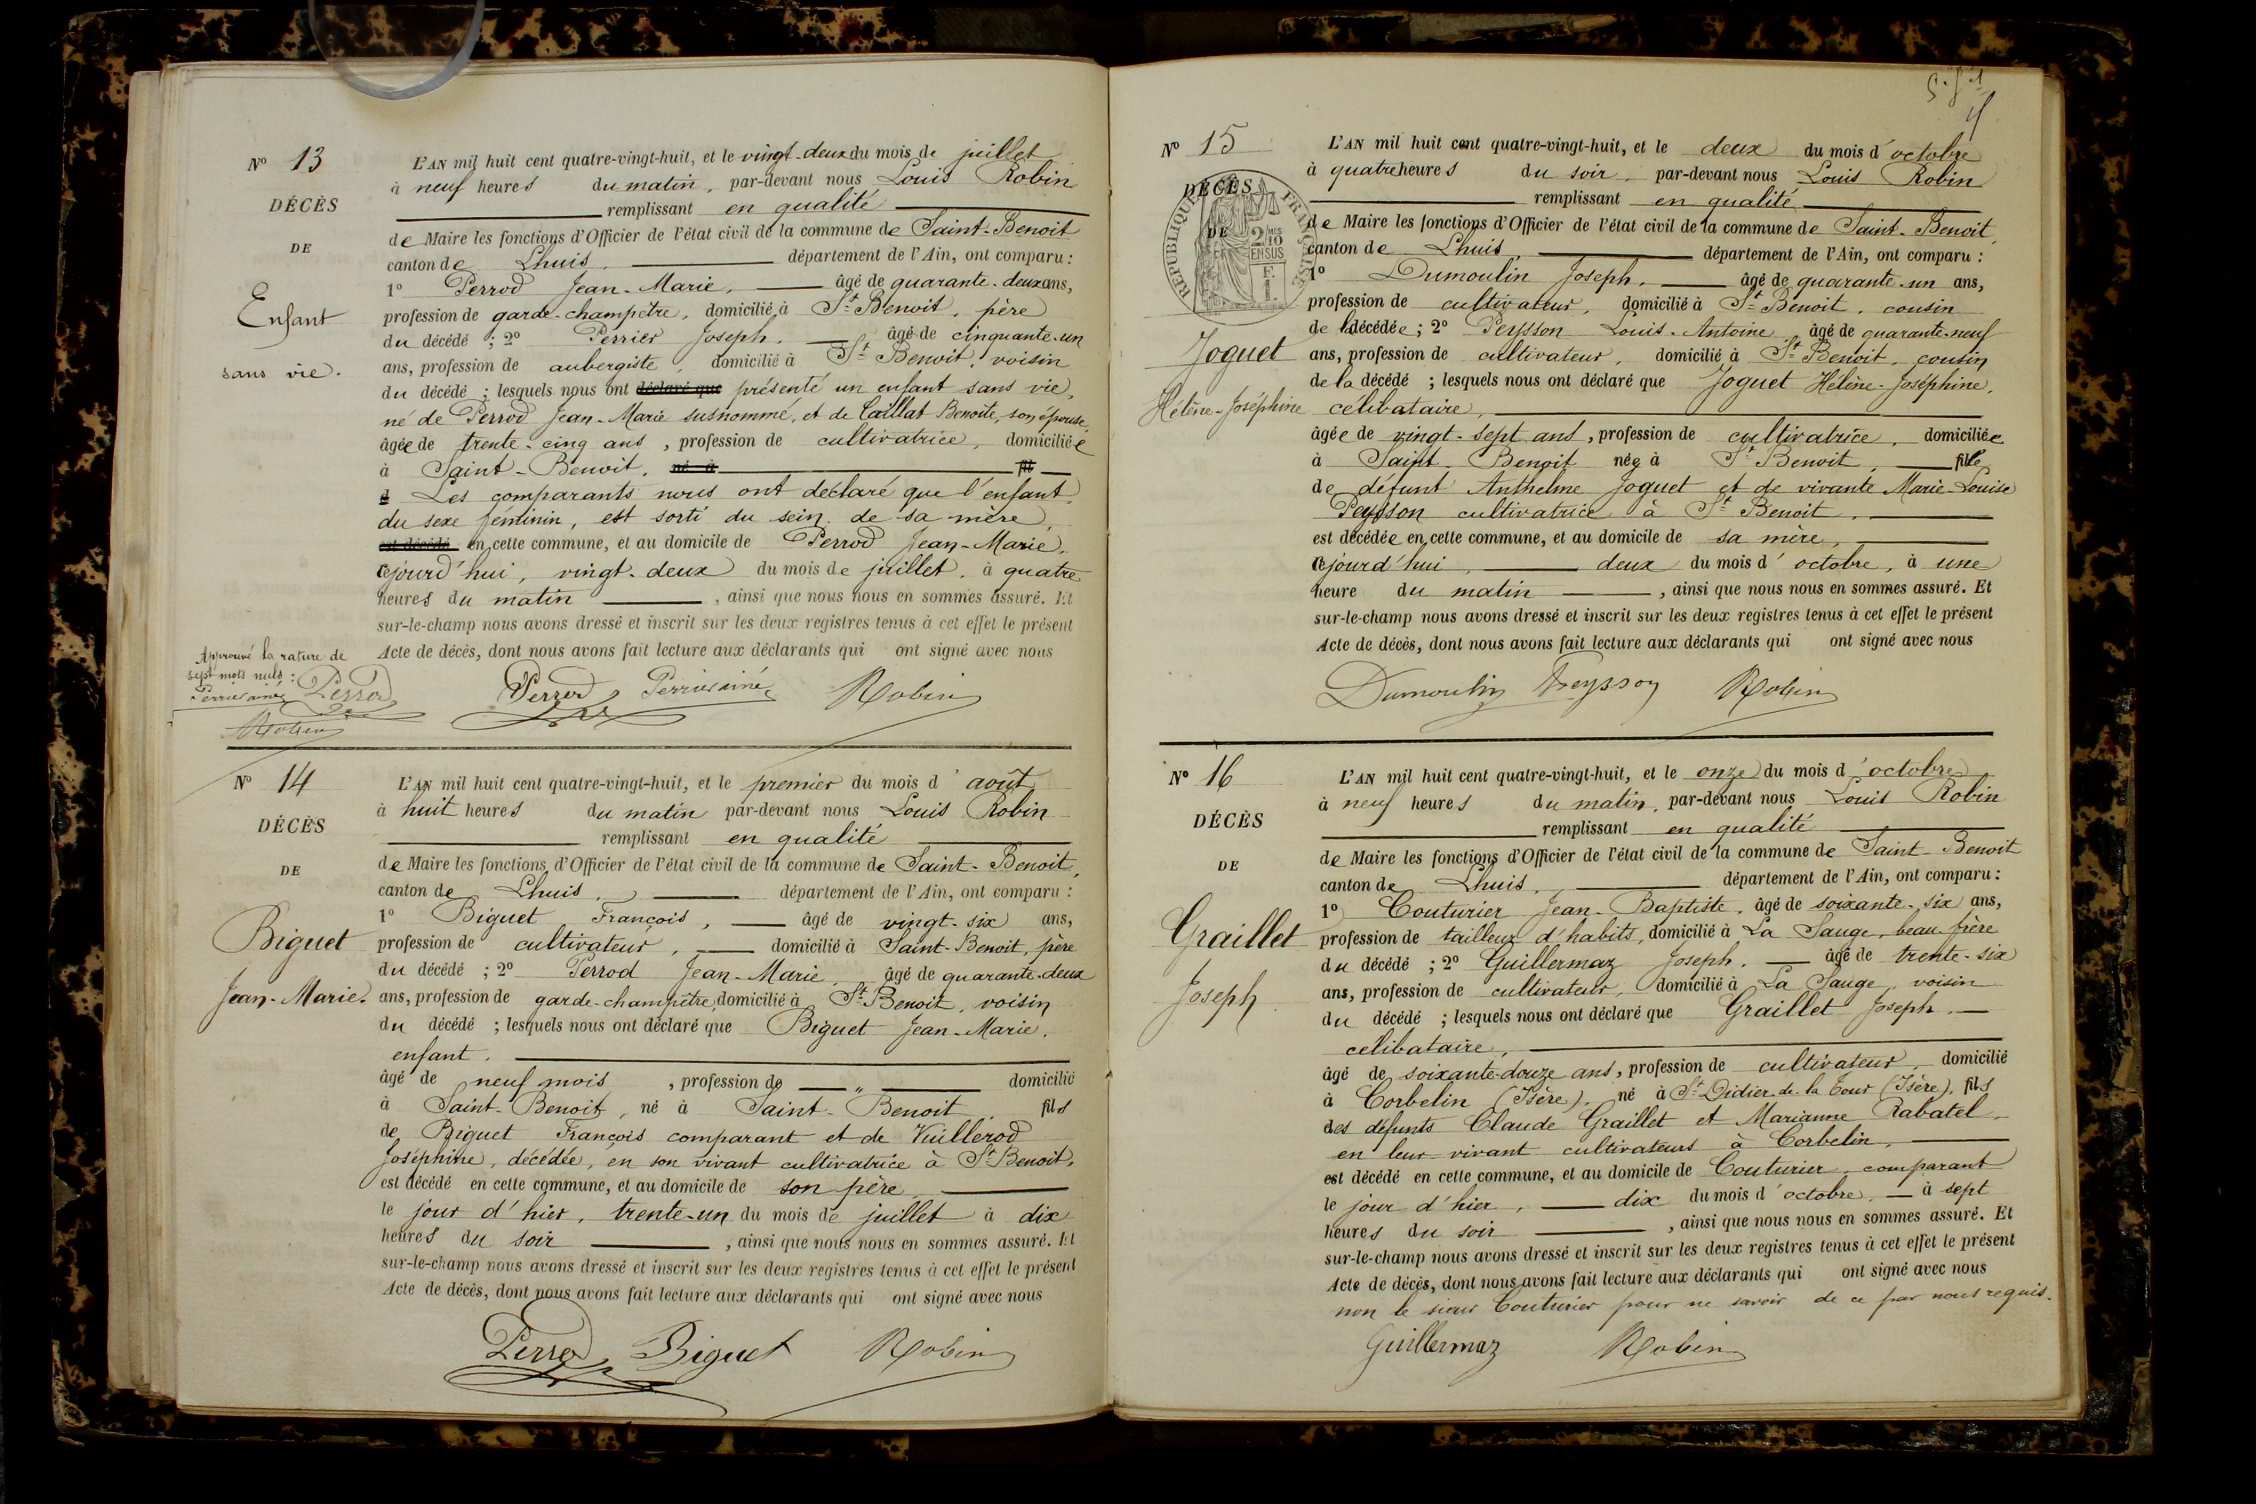 N° 13
DÉCÈS
DE
Enfant
sans vie.
L'AN mil huit cent quatre-vingt-huit, et le vingt-deux du mois de juillet
à neuf heures du matin, par-devant nous Louis Robin
remplissant en qualité
de Maire les fonctions d'Officier de l'état civil de la commune de Saint-Benoit
canton de Lhuis, département de l'Ain, ont comparu :
1° Perrod Jean-Marie, âgé de quarante-deux ans,
profession de garde-champêtre, domicilié à St Benoit, père
du décédé ; 2° Perrier Joseph, âgé de cinquante-un
ans, profession de aubergiste, domicilié à St Benoit, voisin
du décédé ; lesquels nous ont déclaré que présenté un enfant sans vie,
né de Perrod Jean-Marie susnommé, et de Caillat Benoîte, son épouse,
âgée de trente-cinq ans, profession de cultivatrice, domiciliée
à Saint-Benoit, né à fil
d Les comparants nous ont déclaré que l'enfant
du sexe féminin, est sorti du sein de sa mère,
est décédé en cette commune, et au domicile de Perrod Jean-Marie,
cejourd'hui, vingt-deux du mois de juillet, à quatre
heures du matin, ainsi que nous nous en sommes assuré. Et
sur-le-champ nous avons dressé et inscrit sur les deux registres tenus à cet effet le présent
Acte de décès, dont nous avons fait lecture aux déclarants qui ont signé avec nous
Approuvé la rature de
sept mots nuls :
Perrier aîné Perrod
Robin
Perrod Perrier aîné Robin
N° 14
DÉCÈS
DE
Biguet
Jean-Marie.
L'AN mil huit cent quatre-vingt-huit, et le premier du mois d'août
à huit heures du matin par-devant nous Louis Robin
remplissant en qualité
de Maire les fonctions d'Officier de l'état civil de la commune de Saint-Benoit,
canton de Lhuis, département de l'Ain, ont comparu :
1° Biguet François, âgé de vingt-six ans,
profession de cultivateur, domicilié à Saint-Benoit, père
du décédé ; 2° Perrod Jean-Marie, âgé de quarante-deux
ans, profession de garde-champêtre, domicilié à St Benoit, voisin
du décédé ; lesquels nous ont déclaré que Biguet Jean-Marie,
enfant.
âgé de neuf mois, profession de " domicilié
à Saint-Benoit, né à Saint-Benoit, fils
de Biguet François comparant et de Vuillerod
Joséphine, décédée, en son vivant cultivatrice à St Benoit,
est décédé en cette commune, et au domicile de son père,
le jour d'hier, trente-un du mois de juillet à dix
heures du soir, ainsi que nous nous en sommes assuré. Et
sur-le-champ nous avons dressé et inscrit sur les deux registres tenus à cet effet le présent
Acte de décès, dont nous avons fait lecture aux déclarants qui ont signé avec nous
Perrod Biguet Robin
N° 15
DÉCÈS
DE
RÉPUBLIQUE FRANÇAISE
2/10 EN SUS
Joguet
Hélène-Joséphine
L'AN mil huit cent quatre-vingt-huit, et le deux du mois d'octobre
à quatre heures du soir, par-devant nous Louis Robin
remplissant en qualité
de Maire les fonctions d'Officier de l'état civil de la commune de Saint-Benoit,
canton de Lhuis, département de l'Ain, ont comparu :
1° Dumoulin Joseph, âgé de quarante-un ans,
profession de cultivateur, domicilié à St Benoit, cousin
de la décédée ; 2° Peysson Louis-Antoine, âgé de quarante-neuf
ans, profession de cultivateur, domicilié à St Benoit, cousin
de la décédé ; lesquels nous ont déclaré que Joguet Hélène-Joséphine,
célibataire,
âgée de vingt-sept ans, profession de cultivatrice, domiciliée
à Saint-Benoit née à St Benoit, fille
de défunt Anthelme Joguet et de vivante Marie-Louise
Peysson cultivatrice à St Benoit,
est décédée en cette commune, et au domicile de sa mère,
cejourd'hui, deux du mois d'octobre, à une
heure du matin, ainsi que nous nous en sommes assuré. Et
sur-le-champ nous avons dressé et inscrit sur les deux registres tenus à cet effet le présent
Acte de décès, dont nous avons fait lecture aux déclarants qui ont signé avec nous
Dumoulin Peysson Robin
N° 16
DÉCÈS
DE
Graillet
Joseph
L'AN mil huit cent quatre-vingt-huit, et le onze du mois d'octobre
à neuf heures du matin, par-devant nous Louis Robin
remplissant en qualité
de Maire les fonctions d'Officier de l'état civil de la commune de Saint-Benoit
canton de Lhuis, département de l'Ain, ont comparu :
1° Couturier Jean-Baptiste, âgé de soixante-six ans,
profession de tailleur d'habits, domicilié à La Sauge, beau-frère
du décédé ; 2° Guillermaz Joseph, âgé de trente-six
ans, profession de cultivateur, domicilié à La Sauge, voisin
du décédé ; lesquels nous ont déclaré que Graillet Joseph,
celibataire,
âgé de soixante-douze ans, profession de cultivateur, domicilié
à Corbelin (Isère), né à St Didier-de-la Tour (Isère), fils
des défunts Claude Graillet et Marianne Rabatel,
en leur vivant cultivateurs à Corbelin,
est décédé en cette commune, et au domicile de Couturier, comparant
le jour d'hier, dix du mois d'octobre, à sept
heures du soir, ainsi que nous nous en sommes assuré. Et
sur-le-champ nous avons dressé et inscrit sur les deux registres tenus à cet effet le présent
Acte de décès, dont nous avons fait lecture aux déclarants qui ont signé avec nous
non le sieur Couturier pour ne savoir de ce par nous requis.
Guillermaz Robin